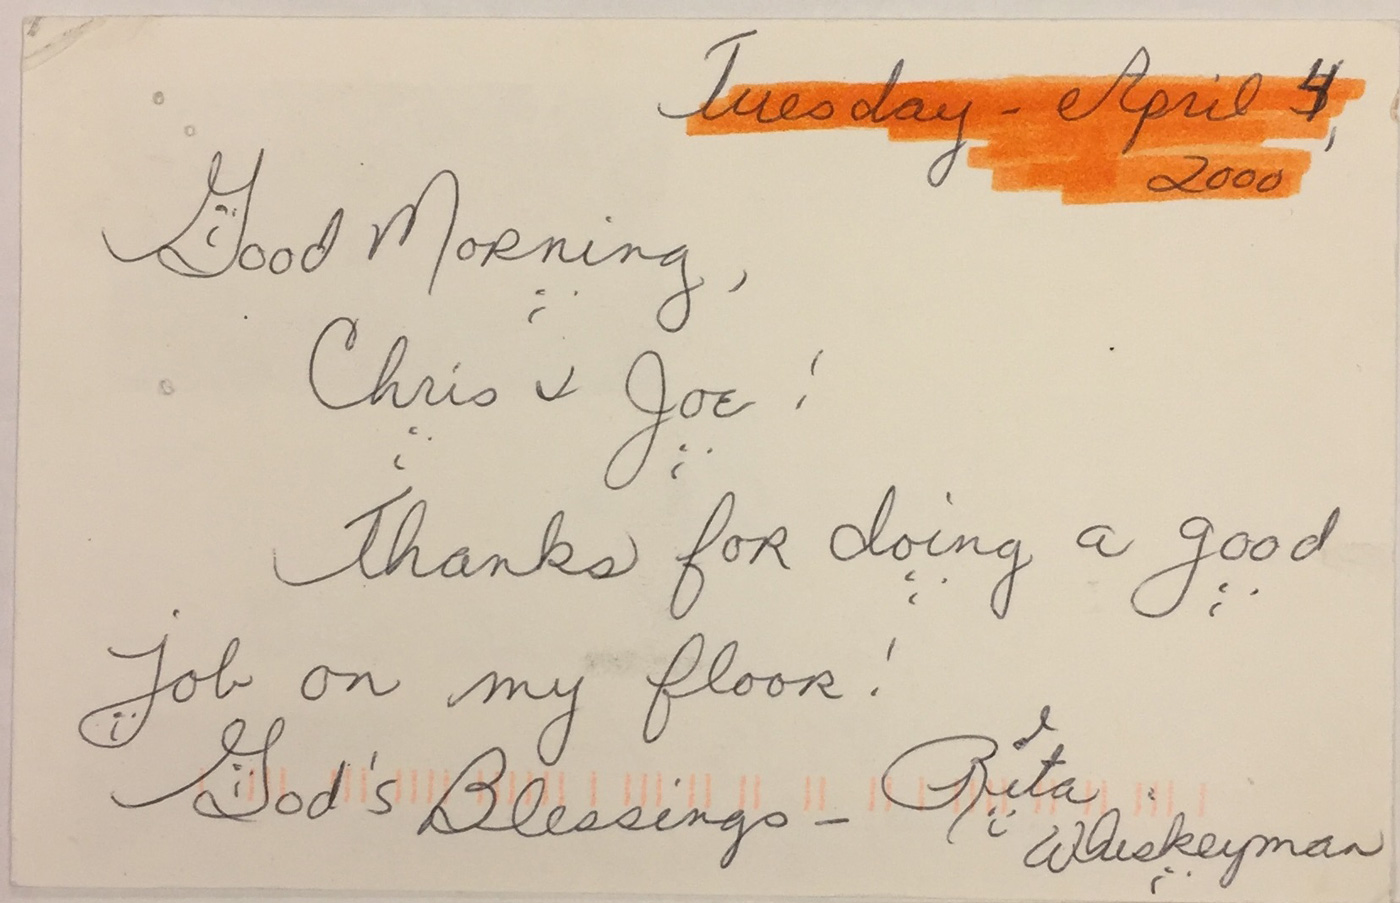 Tuesday - April 4,
2000
Good Morning,
Chris & Joe!
Thanks for doing a good
job on my floor!
God's Blessings - Rita
Whiskeyman